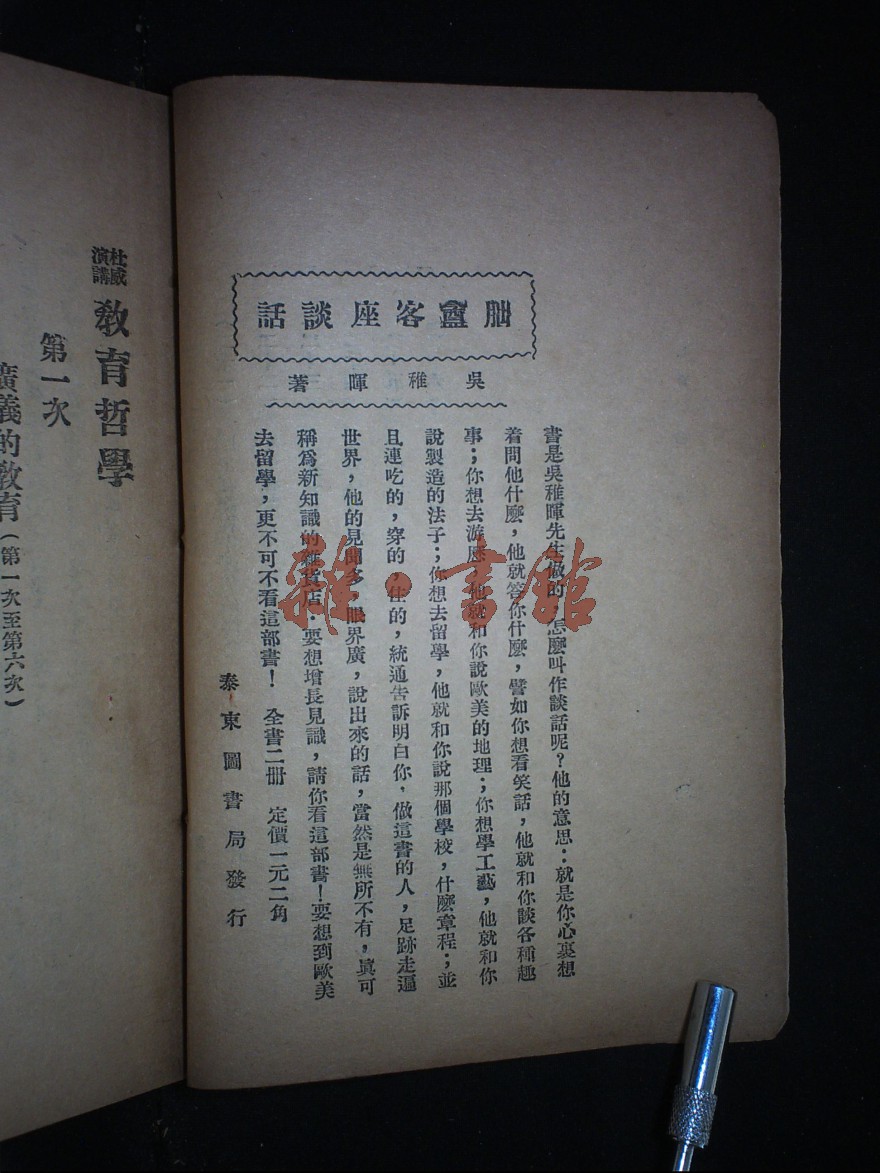 朏盦客座談話
吳稚暉著
書是吳稚暉先生做的，怎麼叫作談話呢？他的意思：就是你心裏想
着問他什麼，他就答你什麼，譬如你想看笑話，他就和你談各種趣
事；你想去游歷，他就和你說歐美的地理；你想學工藝，他就和你
說製造的法子；你想去留學，他就和你說那個學校，什麼章程；並
且連吃的，穿的，住的，統通告訴明白你，做這書的人，足跡走遍
世界，他的見聞多，眼界廣，說出來的話，當然是無所不有，眞可
稱爲新知識的雜貨店．要想增長見識，請你看這部書！要想到歐美
去留學，更不可不看這部書！　全書二冊　定價一元二角
泰東圖書局發行
杜威演講
教育哲學
第一次
廣義的教育（第一次至第六次）
雜·書館